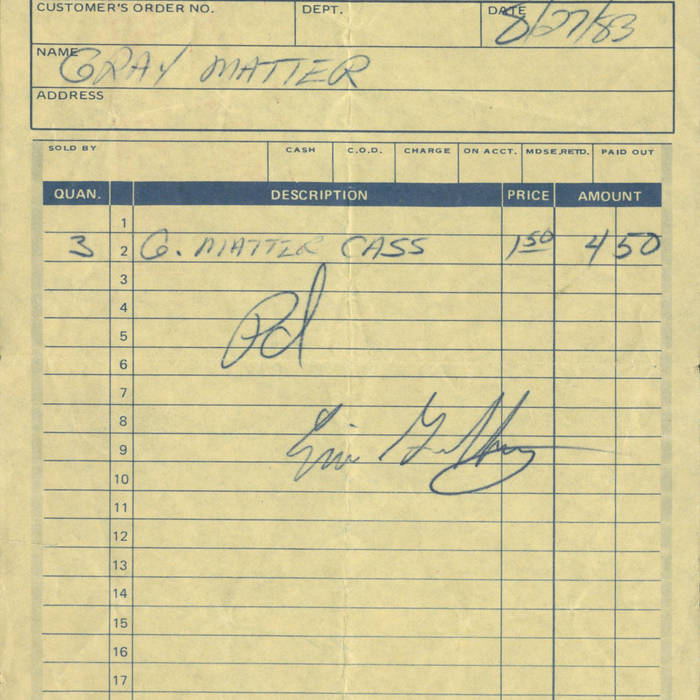 CUSTOMER'S ORDER NO. DEPT. DATE 8/27/83
NAME GRAY MATTER
ADDRESS
SOLD BY CASH C.O.D. CHARGE ON ACCT. MDSE.RETD. PAID OUT
QUAN. DESCRIPTION PRICE AMOUNT
1
3 2 G. MATTER CASS 1.50 4 50
3
4
Pd
5
6
7
8
Eric
9
10
11
12
13
14
15
16
17